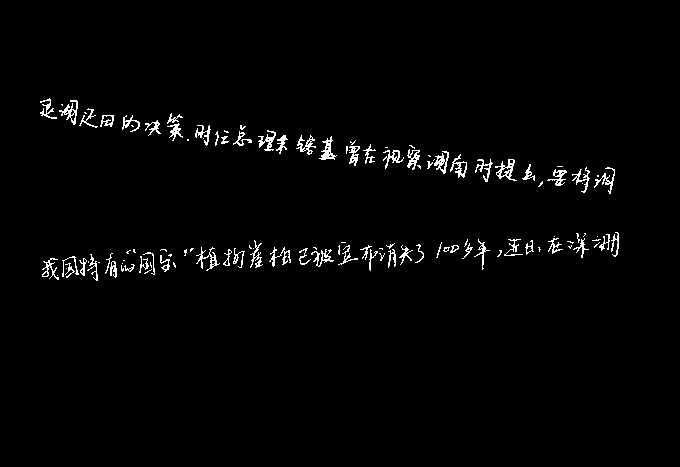 退湖还田的决策.时任总理朱镕基曾在视察湖南时提出,要将洞
我国特有的“国宝”植物崖柏已被宣布消失了100多年,近日,在深圳